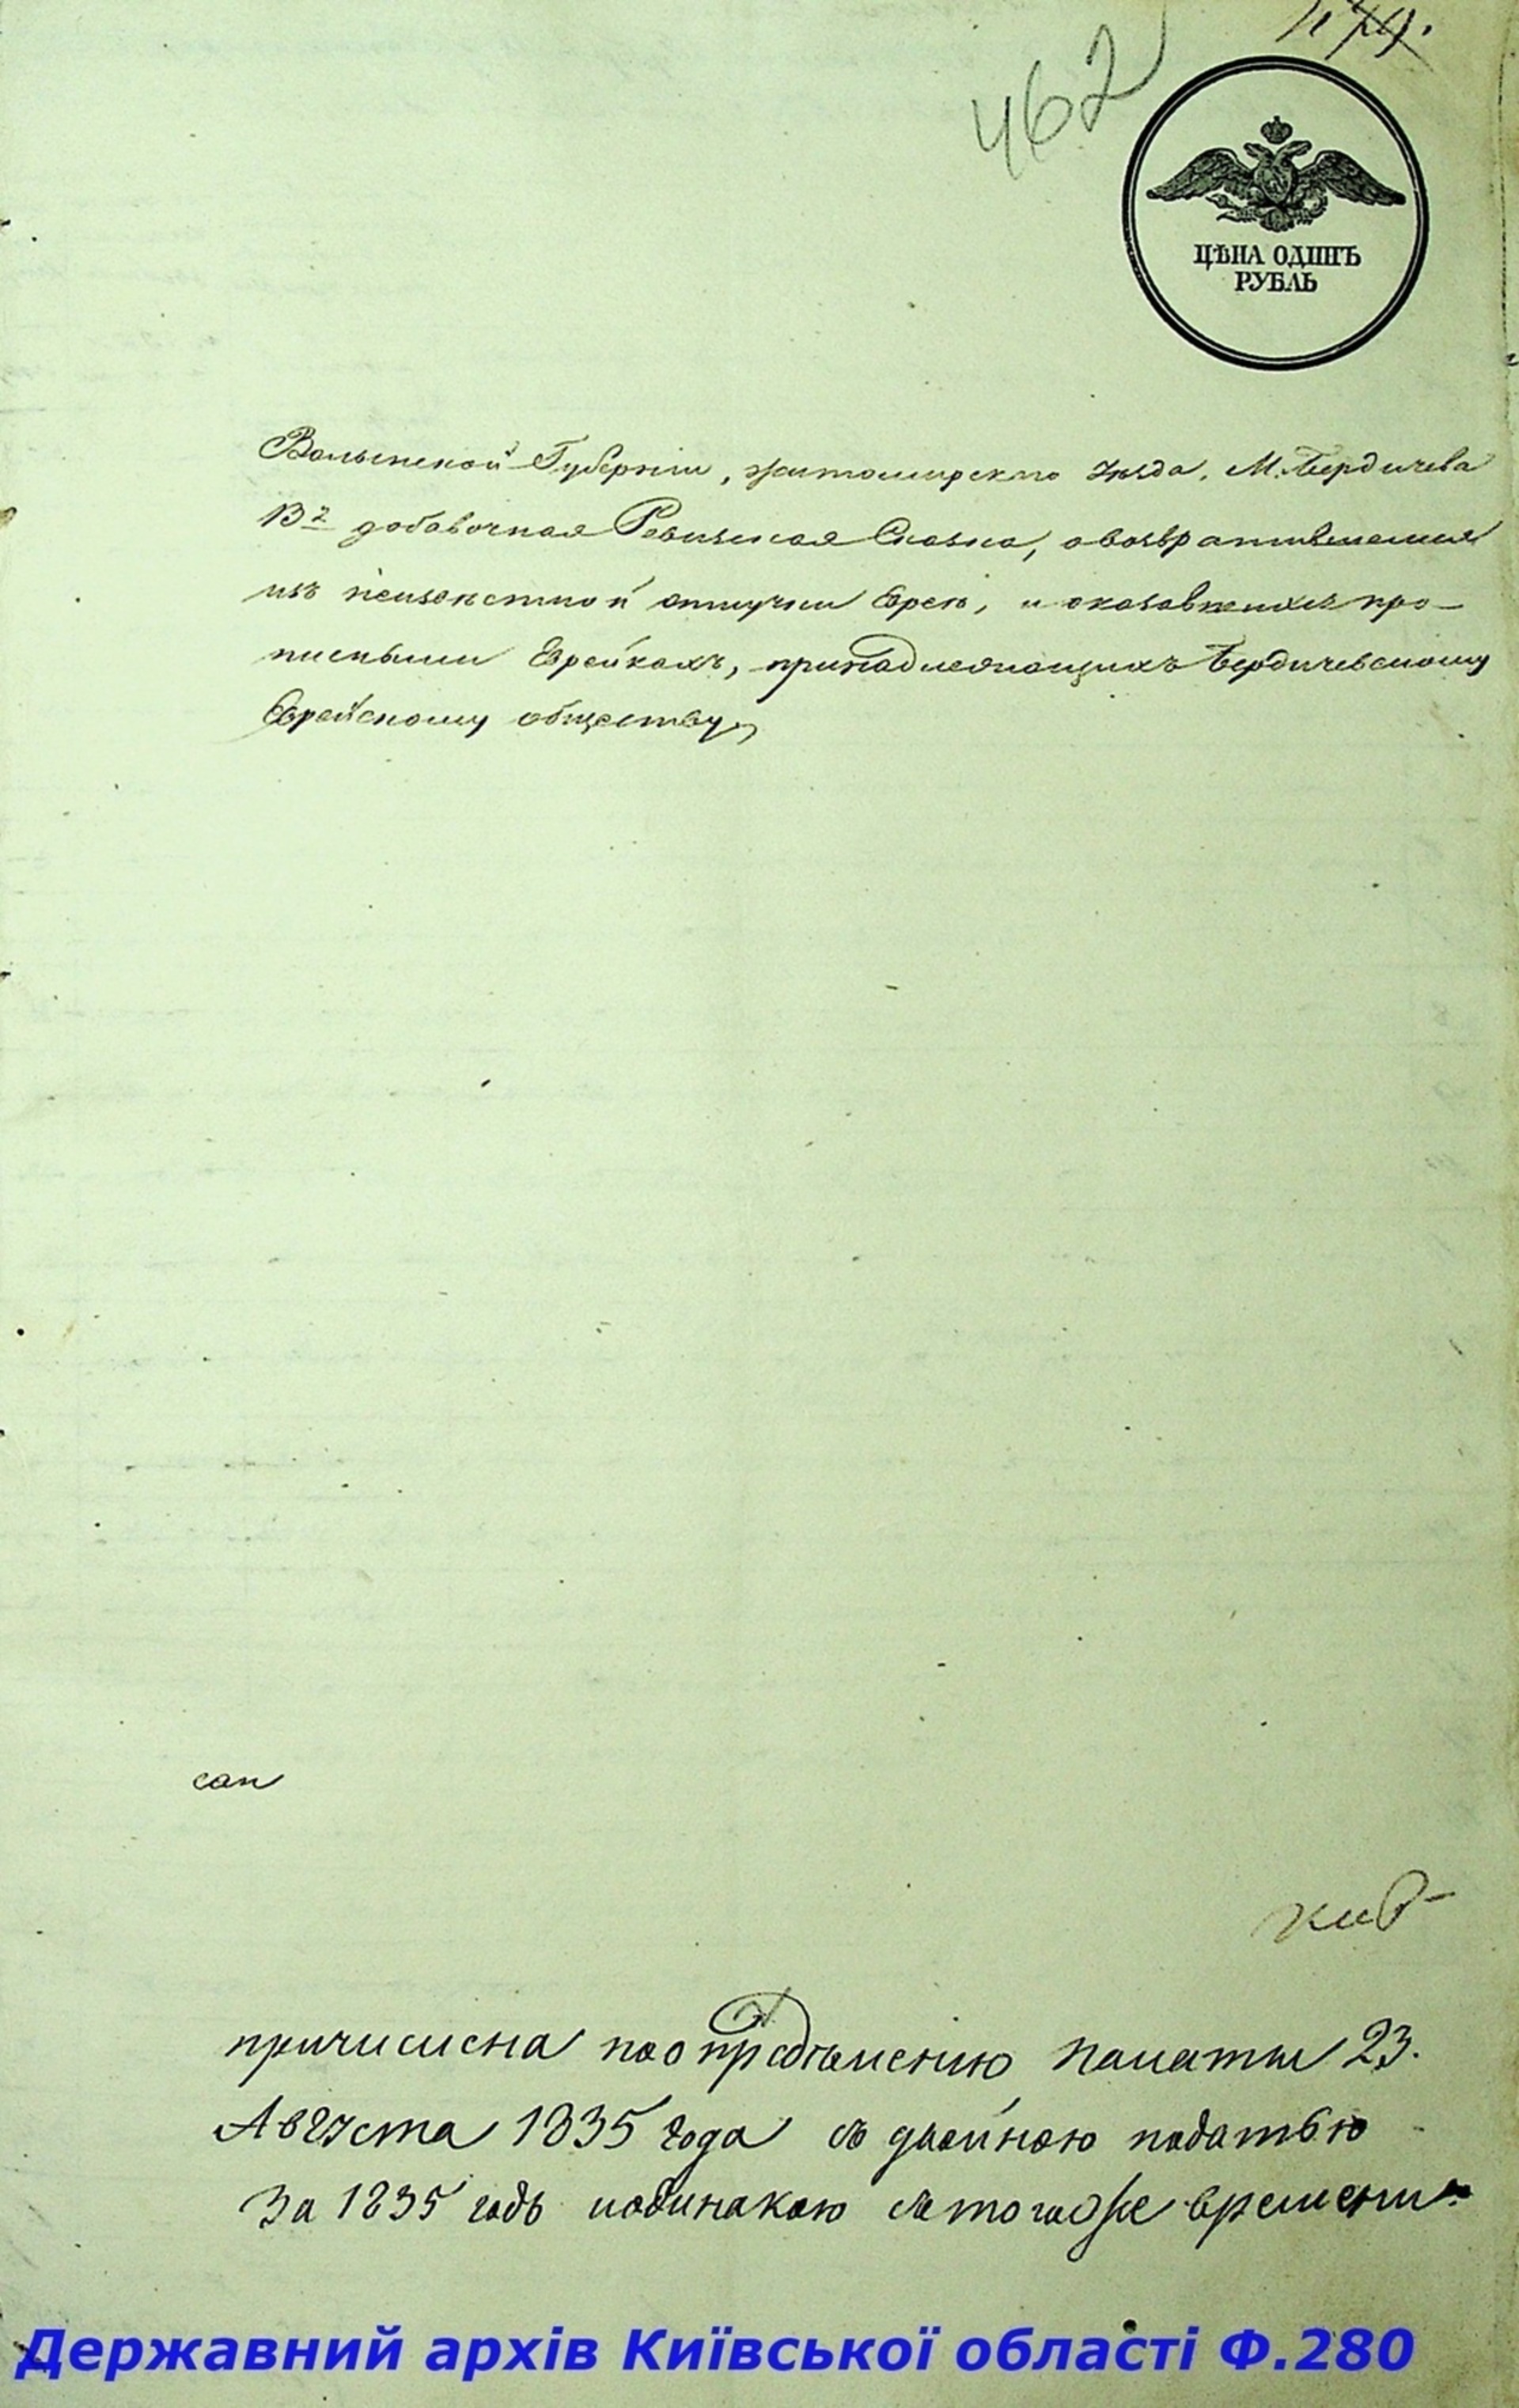 462
ЦѢНА ОДИНЪ
РУБЛЬ
Волынской Губерніи, Житомирскаго Уѣзда, М. Бердичева
13я добавочная Ревизская Сказка, о возвратившемся
изъ неизвѣстной отлучки Еврею, и оказавшихся про-
писными Еврейкахъ, принадлежащихъ Бердичевскому
Еврейскому обществу
причислена по опредѣленію палаты 23.
Августа 1835 года съ двойною податью
за 1835 годъ и одинакою съ того же времени
Державний архів Київської області Ф.280